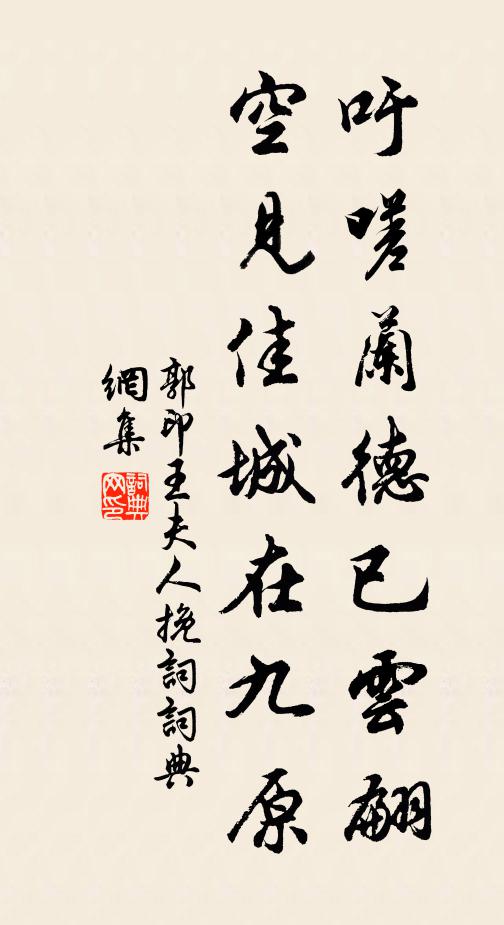 吁嗟蘭德已雲翩
空見佳城在九原
郭印王夫人挽詞詞典
網集
詞典
网印